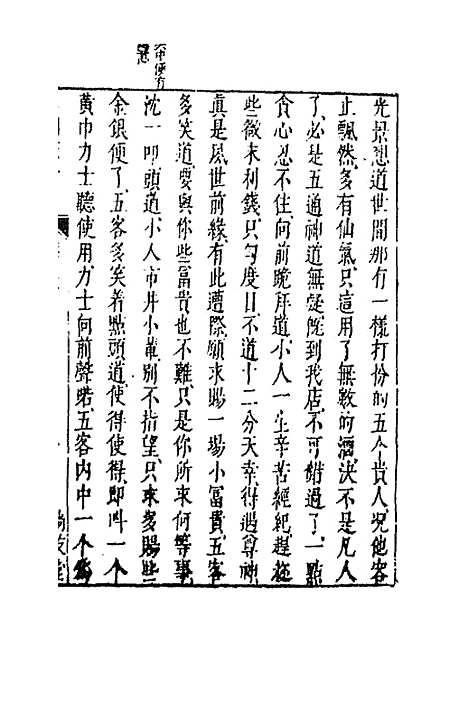 不甲便有
光景想道世間那有一樣打份的五个貴人况他客
止飄然多有仙氣只這用了無數的酒决不是凡人
了必是五通神道無疑旣到我店不可錯過了一點
貪心忍不住向前跪拜道小人一生辛苦經紀趕趂
些微末利錢只勾度日不道十二分天幸得遇尊神
真是夙世前緣有此遭際願求賜一場小冨貴五客
多笑道要與你些冨貴也不難只是你所求何等事
沈一叩頭道小人市井小輩别不指望只求多賜些
金銀便了五客多笑着點頭道使得使得即呌一个
黄巾力士聽使用力士向前聲喏五客内中一个爲
尚友堂